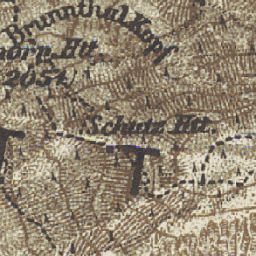 Brunnthal Kopf
Htt
2054)
Schutz Htt.
T